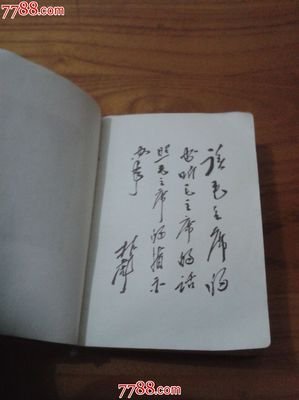 7788.com
读毛主席的
书听毛主席的话
照毛主席的指示
办事
林彪
7788.com